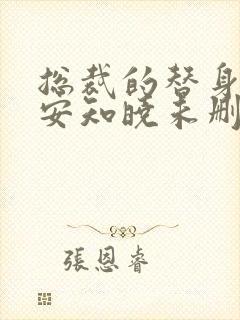 总裁的替身
安知晓未删
張恩睿